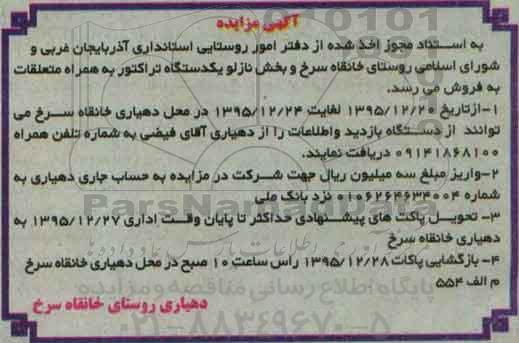 آگهی مزایده
به استناد مجوز اخذ شده از دفتر امور روستایی استانداری آذربایجان غربی و
شورای اسلامی روستای خانقاه سرخ و بخش نازلو یکدستگاه تراکتور به همراه متعلقات
به فروش می رسد.
۱-ازتاریخ ۱۳۹۵/۱۲/۲۰ لغایت ۱۳۹۵/۱۲/۲۴ در محل دهیاری خانقاه سرخ می
توانند از دستگاه بازدید واطلاعات را از دهیاری آقای فیضی به شماره تلفن همراه
۰۹۱۴۱۸۶۸۱۰۰ دریافت نمایند.
۲-واریز مبلغ سه میلیون ریال جهت شرکت در مزایده به حساب جاری دهیاری به
شماره ۰۱۰۶۲۶۴۶۳۴۰۰۴ نزد بانک ملی
۳- تحویل پاکت های پیشنهادی حداکثر تا پایان وقت اداری ۱۳۹۵/۱۲/۲۷ به
دهیاری خانقاه سرخ
۴- بازگشایی پاکات ۱۳۹۵/۱۲/۲۸ راس ساعت ۱۰ صبح در محل دهیاری خانقاه سرخ
م الف ۵۵۴
دهیاری روستای خانقاه سرخ
ParsNamadData
پایگاه اطلاع رسانی مناقصه و مزایده
۰۲۱-۸۸۳۴۹۶۷۰-۵